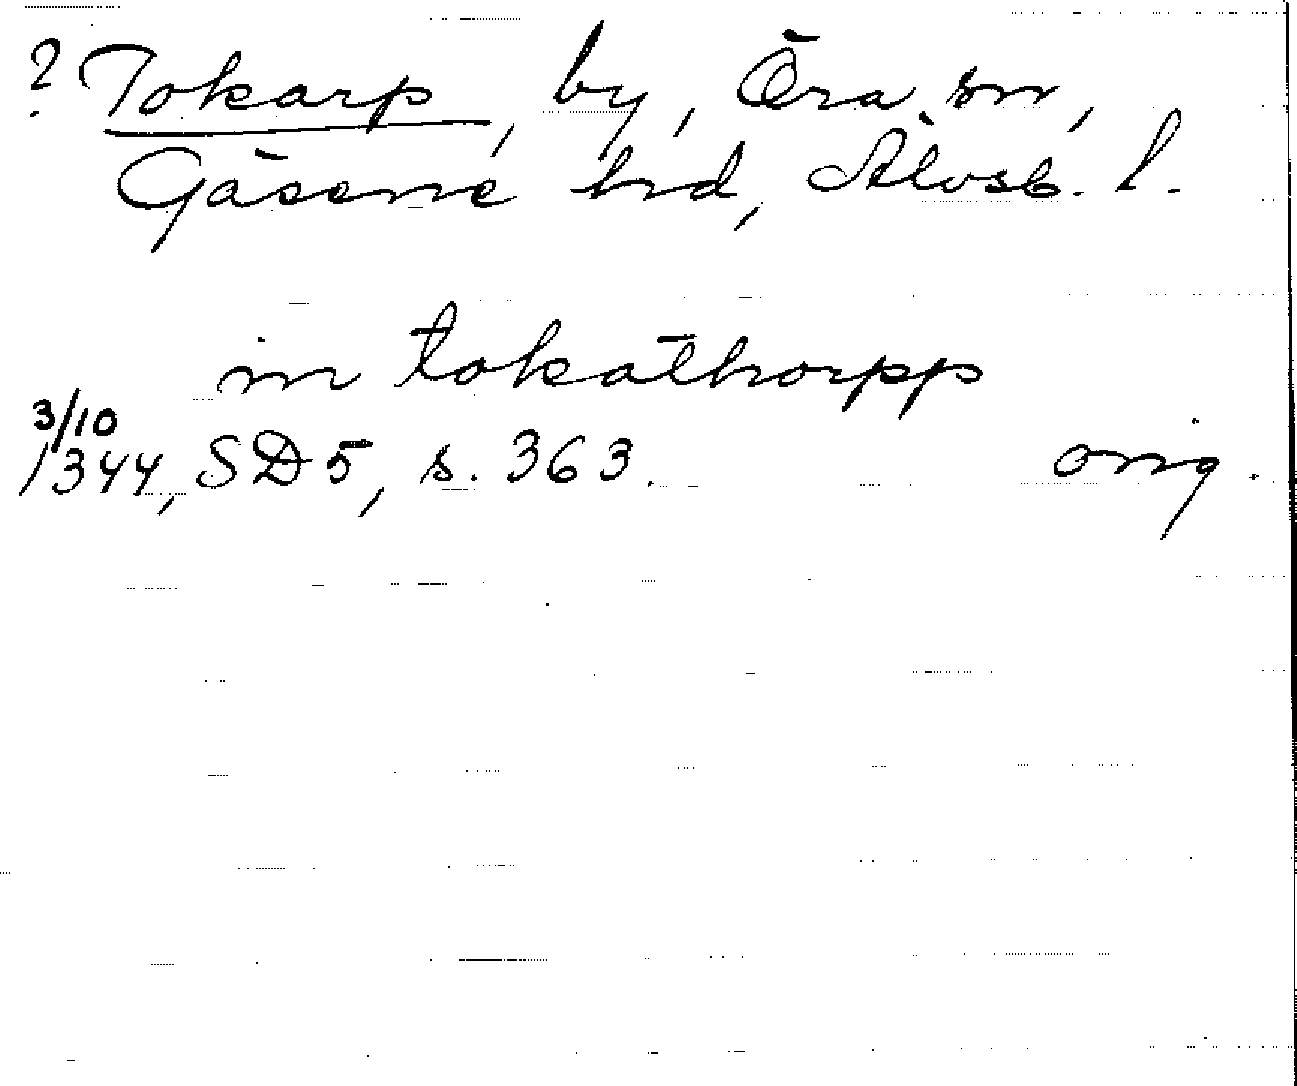 ? Tokarp, by, Öra sn,
Gäsene hd, Älvsb. l.
in tokathorpp
3/10
1344, SD 5, s. 363. orig.